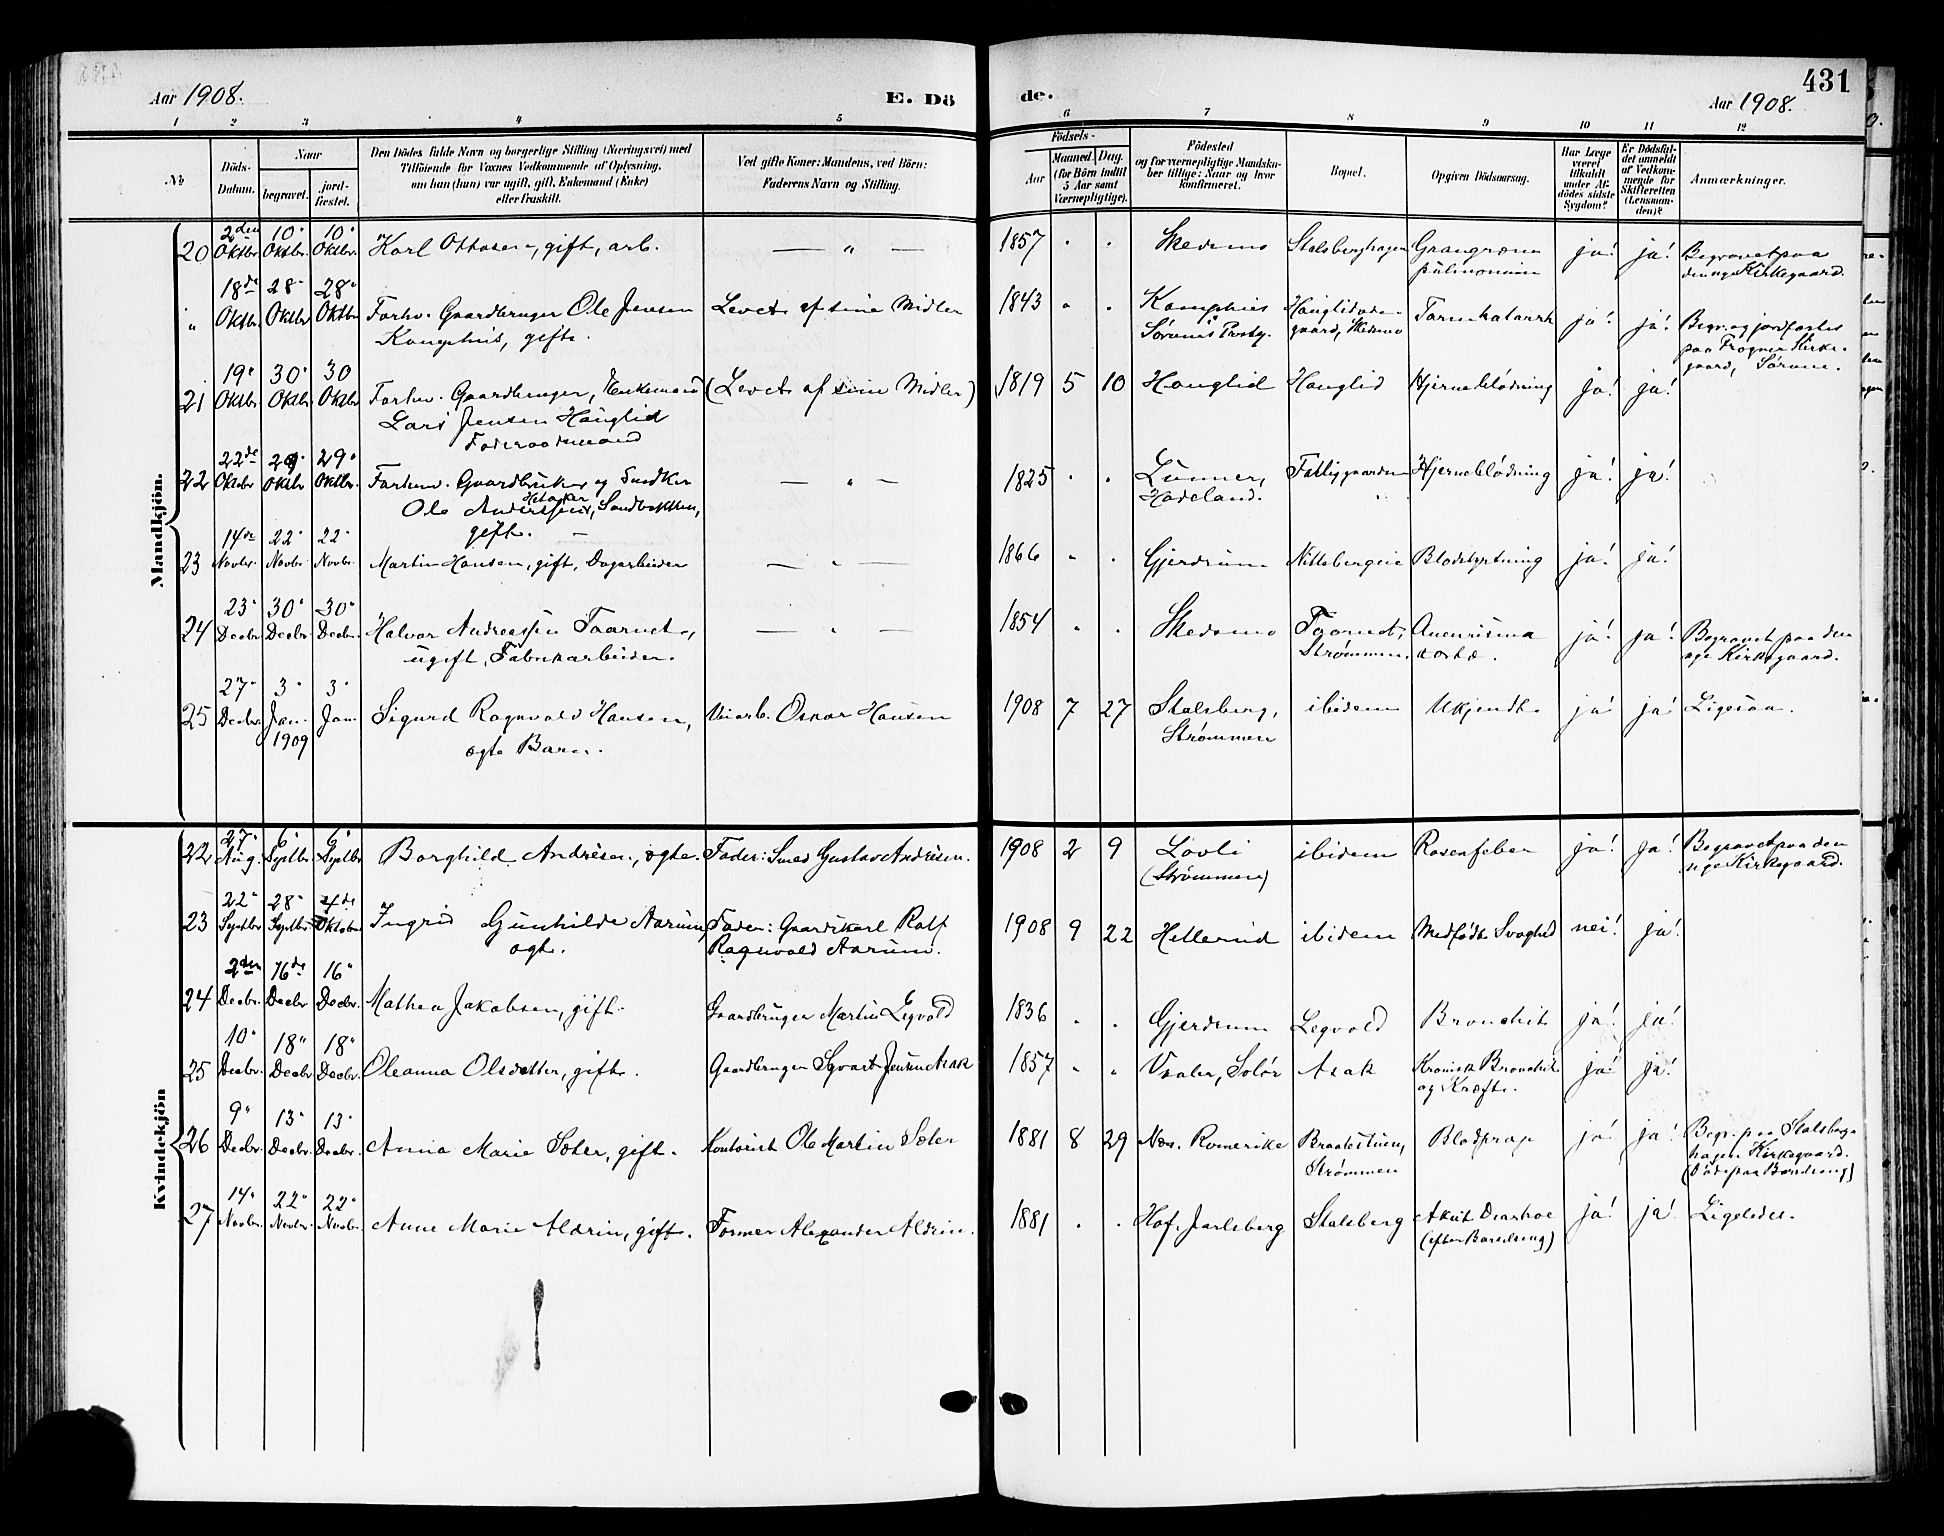 Aar 1908.
E. Dö
de.
431
Aar 1908.
1 2 3 4 5 6 7 8 9 10 11 12
No
Döds-Datum.
Naar
begravet.
jord-fæstet.
Den Dödes fulde Navn og borgerlige Stilling (Næringsvei) med
Tilföiende for Voxnes Vedkommende af Oplysning,
om han (hun) var ugift, gift, Enkemand (Enke)
eller fraskilt.
Ved gifte Koner: Mandens, ved Börn:
Faderens Navn og Stilling.
Födsels-
Aar
Maaned. Dag.
(for Börn indtil
5 Aar samt
Værnepligtige).
Födested
og for værnepligtige Mandsku-
ber tillige: Naar og hvor
konfirmeret.
Bopæl.
Opgiven Dödsaarsag.
Har Læge
været
tilkaldt
under Af-
dödes sidste
Sygdom?
Er Dödsfal-
det anmeldt
af Vedkom-
mende for
Skifteretten
(Lensman-
den)?
Anmærkninger.
Mandkjön.
20 2den Oktbr. 10" Oktbr. 10" Oktbr. Karl Ottosen, gift, arb. — " — 1857 " " Skedsmo Stalsberghagen ja! ja! Begravet paa
den nye Kirkegaard.
" 18de Oktbr. 28" Oktbr. 28" Oktbr. Forhv. Gaardbruger Ole Jensen
Kamphus, gift. Levet af sine Midler 1843 " " Kamphus
Sørums Prstg. gaard, Skedsmo Tarmkatarrh ja! ja! Begr. og jordfæstes
paa Frogner Kirke-
gaard, Sørum.
21 19" Oktbr. 30" Oktbr. 30 Oktbr. Forhv. Gaardbruger, Enkemand
Lars Jensen Hauglid
Føderaadsmand (Levet af sine Midler) 1819 5 10 Hauglid Hauglid Hjerneblødning ja! ja!
22 22de Oktobr. 29" Oktbr. 29" Oktbr. Forhenv. Gaardbruker og Snedker
Ole Anderssen, Sandbakken,
gift. — " — 1825 " " Lunner,
Hadeland. Fattiggaarden Hjerneblødning ja! ja!
23 14de Novbr. 22" Novbr. 22" Novbr. Martin Hansen, gift, Dagarbeider — " — 1866 " " Gjerdrum Nittebergeie Blodstyrtning ja! ja!
24 23" Decbr. 30" Decbr. 30" Decbr. Halvor Andreassen Taarnet,
ugift, Fabrikarbeider. — " — 1854 " " Skedsmo Taarnet,
Strømmen. Aneurisma
aortæ. ja! ja! Begravet paa den
nye Kirkegaard.
25 27" Decbr. 3" Jan. 1909 3" Jan. Sigurd Ragnvald Hansen,
ægte Barn. Oskar Hansen 1908 7 27 Stalsberg,
Strømmen ibidem Ukjendt. ja! ja! Ligesaa.
Kvindekjön
22 27" Aug. 6" Septbr. 6" Septbr. Borghild Andrésen, ægte. Fader: Smed Gustav Andrésen. 1908 2 9 Løvli
(Strømmen) ibidem Rosenfeber ja! ja! Begravet paa den
nye Kirkegaard.
23 22" Septbr. 28" Septbr. 4de Oktober Ingrid Gunhilde Aarum,
ægte. Fader: Gaardskarl Rolf
Ragnvald Aarum. 1908 9 22 Hellerud ibidem Medfødt Svaghed nei! ja!
24 2den Decbr. 16de Decbr. 16" Decbr. Mathea Jakobsen, gift. Gaardbruger Martin Legvold 1836 " " Gjerdrum Legvold Bronchit ja! ja!
25 10" Decbr. 18" Decbr. 18" Decbr. Oleanna Olsdatter, gift. Gaardbruger Syvert Jensen Asak 1857 " " Vaaler, Solør Asak Kronisk Bronchit
og Kræft. ja! ja!
26 9" Decbr. 13" Decbr. 13" Decbr. Anna Marie Sæter, gift. Kontorist Ole Martin Sæter 1881 8 29 Næs. Romerike Braatestuen,
Strømmen Blodprop ja! ja! Begr. paa Stalsberg-
hagen Kirkegaard.
(Døde paa Barselseng)
27 14" Novbr. 22" Novbr. 22" Novbr. Anne Marie Aldrin, gift. Former Alexander Aldrin. 1881 " " Hof. Jarlsberg Stalsberg Akut Diarrhoe
(efter Barselseng) ja! ja! Ligeledes.